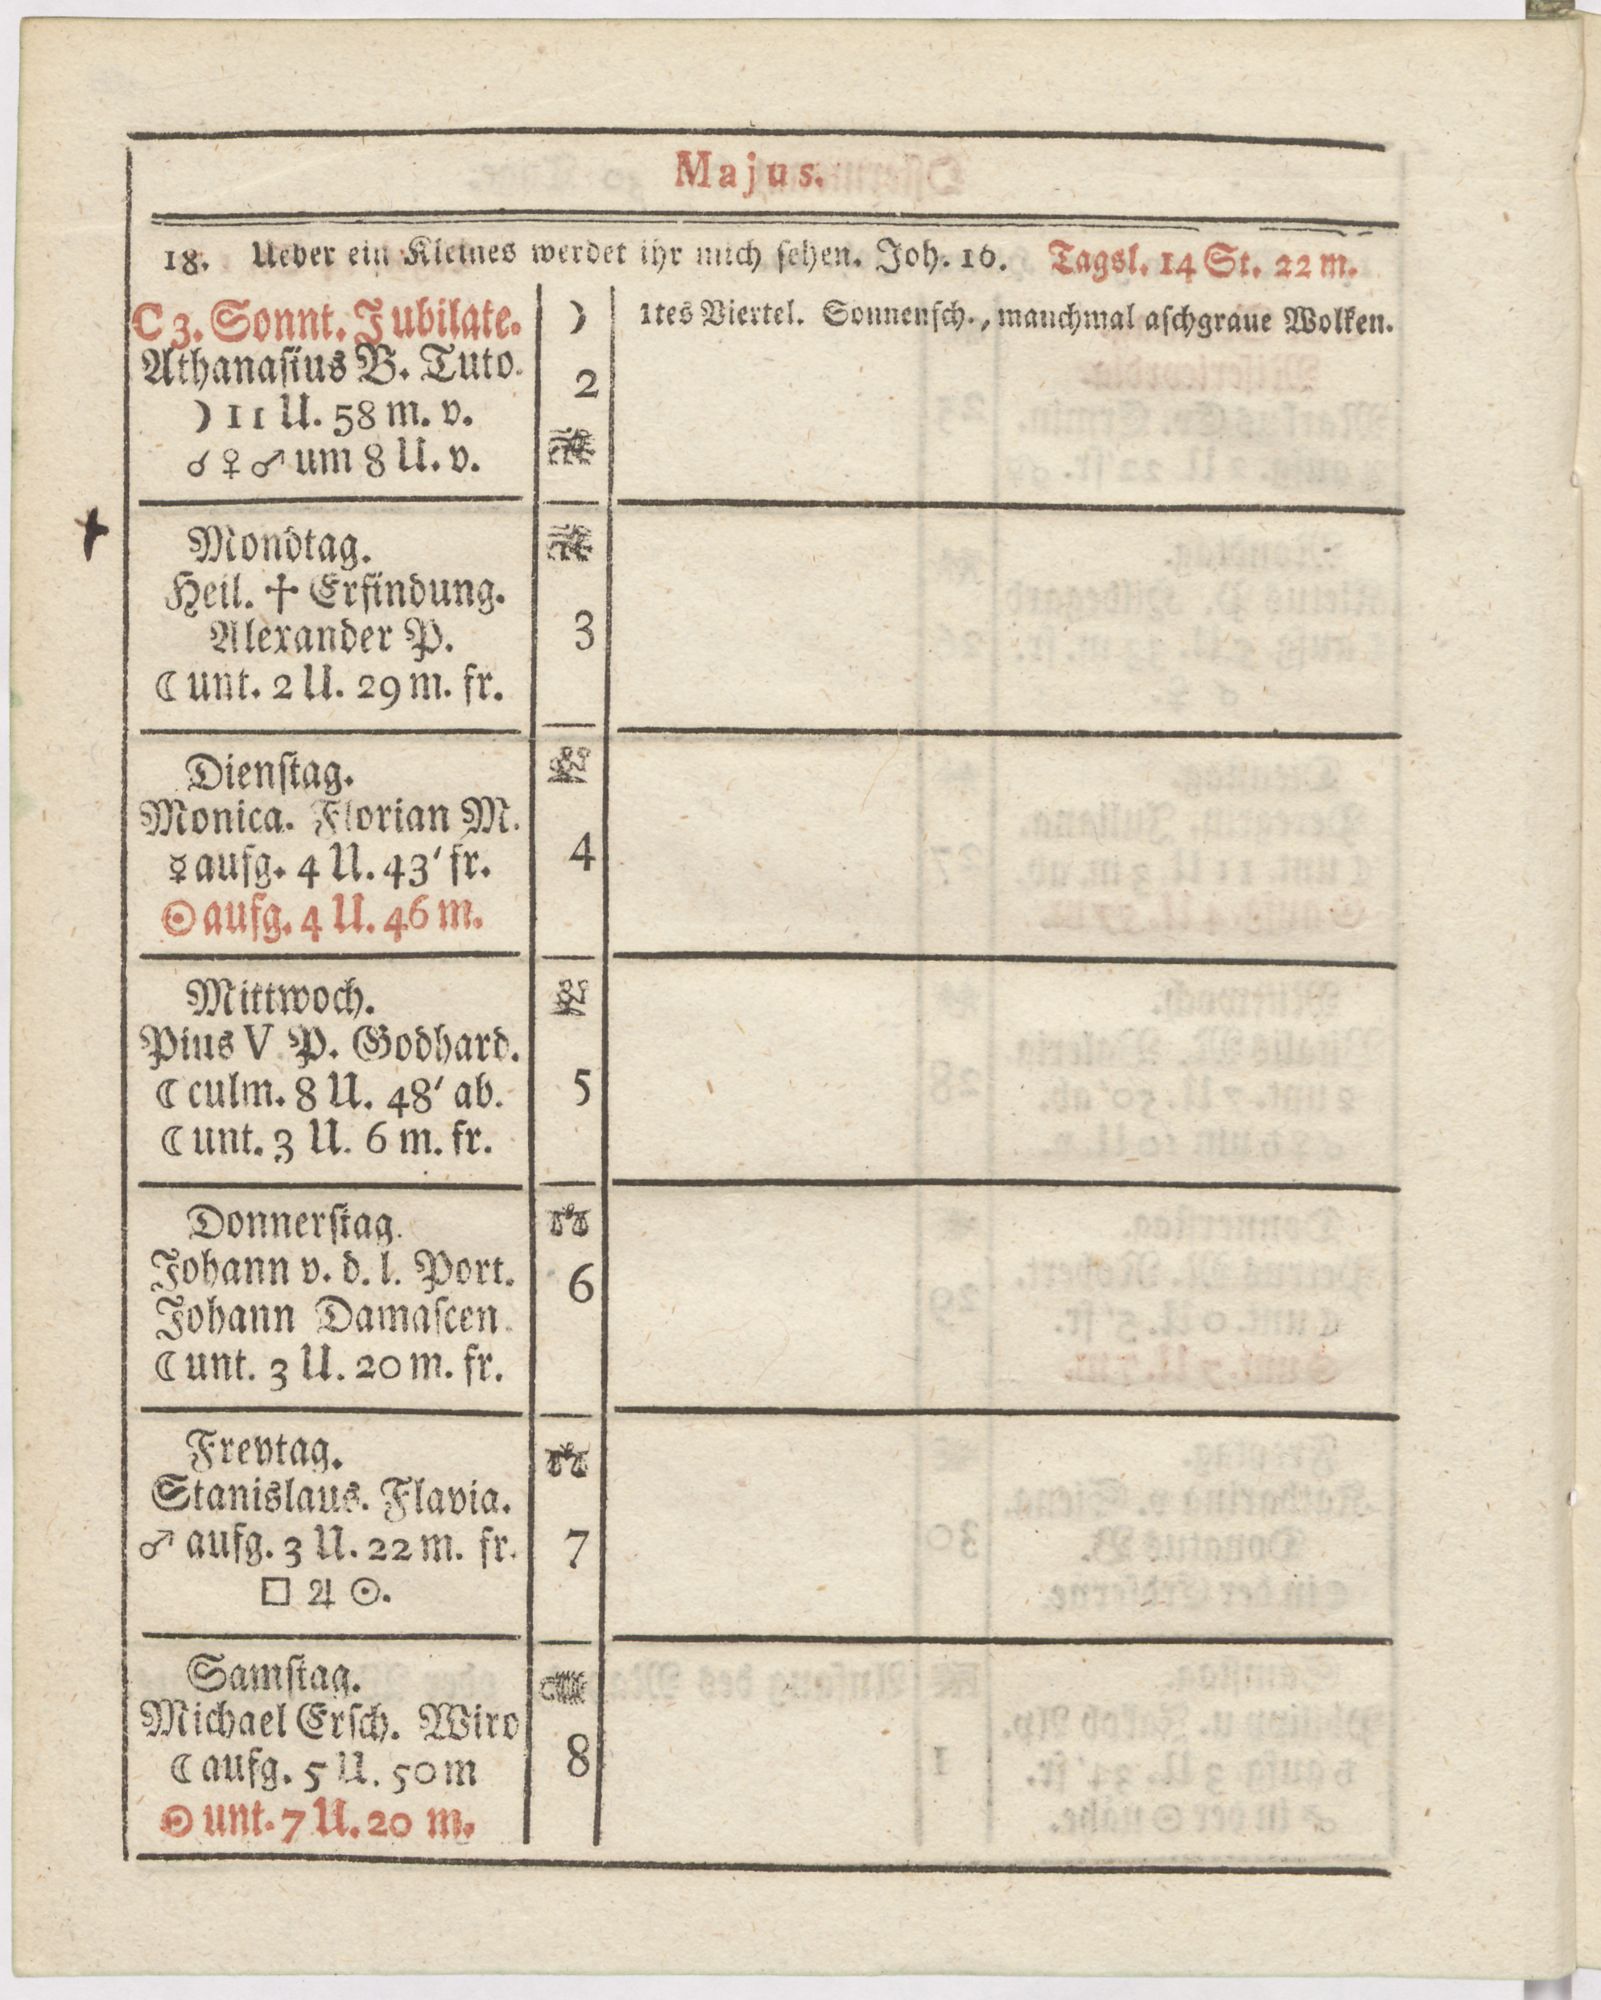 Majus.
18. Ueber ein Kleines werdet ihr mich sehen. Joh. 16. Tagsl. 14 St. 22 m.
C 3. Sonnt. Jubilate.
☽
1tes Viertel. Sonnensch., manchmal aschgraue Wolken.
Athanasius B. Tuto.
2
☽ 11 U. 58 m. v.
☌ ♀ ♂ um 8 U. v.
Mondtag.
Heil. ✝ Erfindung.
3
Alexander P.
☾ unt. 2 U. 29 m. fr.
Dienstag.
Monica. Florian M.
4
☿ aufg. 4 U. 43′ fr.
☉ aufg. 4 U. 46 m.
Mittwoch.
Pius V P. Godhard.
5
☾ culm. 8 U. 48′ ab.
☾ unt. 3 U. 6 m. fr.
Donnerstag.
Johann v. d. l. Port.
6
Johann Damascen.
☾ unt. 3 U. 20 m. fr.
Freytag.
Stanislaus. Flavia.
7
♂ aufg. 3 U. 22 m. fr.
□ ♃ ☉.
Samstag.
Michael Ersch. Wiro
8
☾ aufg. 5 U. 50 m
☉ unt. 7 U. 20 m.